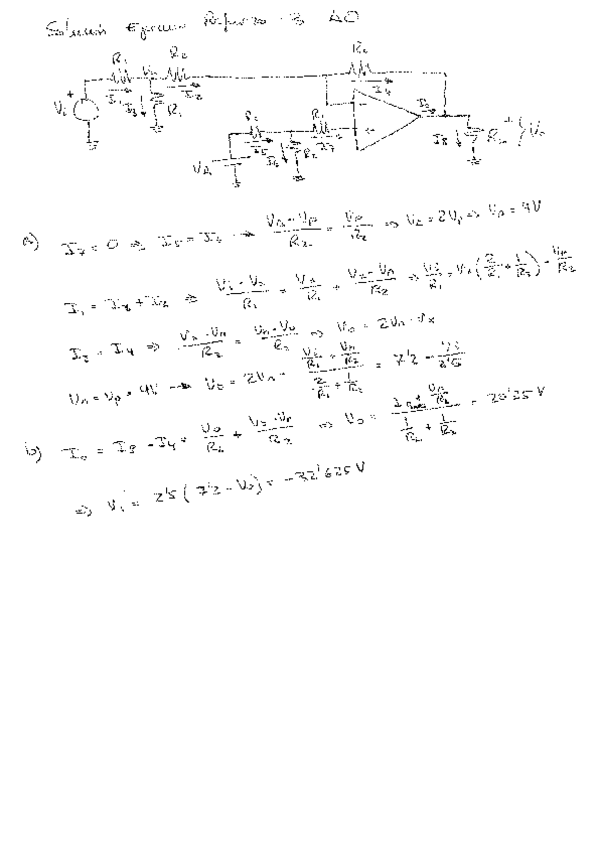 Solución Ejercicio Refuerzo - 3 AO
R₁ R₂ R₂
Vₓ
I₁ I₂ I₄
Vᵢ I₃ R₁
R₂ R₁ I₀
I₅ I₆ R₂ I₇ I₈ R_L V₀
a) I₇ = 0 ⇒ I₅ = I₆ → (V_A - V_p)/R₂ = V_p/R₂ ⇒ V_A = 2V_p ⇒ V_p = 4V
I₁ = I₃ + I₂ ⇒ (Vᵢ - Vₓ)/R₁ = Vₓ/R₁ + (Vₓ - Vₙ)/R₂ ⇒ Vᵢ/R₁ = Vₓ(2/R₁ + 1/R₂) - Vₙ/R₂
I₂ = I₄ ⇒ (Vₓ - Vₙ)/R₂ = (Vₙ - V₀)/R₂ ⇒ V₀ = 2Vₙ - Vₓ
Vₙ = V_p = 4V → V₀ = 2Vₙ - (Vᵢ/R₁ + Vₙ/R₂)/(2/R₁ + 1/R₂) = 7'2 - Vᵢ/2'5
b) I₀ = I₈ - I₄ = V₀/R_L + (V₀ - V_p)/R₂ ⇒ V₀ = = 20'25 V
⇒ Vᵢ = 2'5 (7'2 - V₀) = -32'625 V